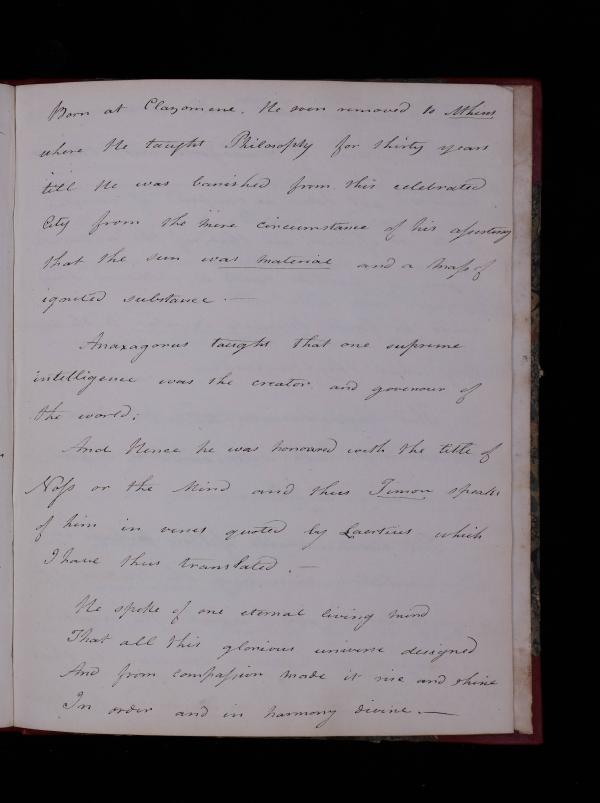 Born at Clazomene. He soon removed to Athens
where He taught Philosophy for thirty years
till He was banished from this celebrated
City from the mere circumstance of his asserting
that the sun was material and a mass of
ignited substance. —
Anaxagorus taught that one supreme
intelligence was the creator and govenour of
the world;
And Hence he was honoured with the title of
or the Mind and thus Timon speaks
of him in verses quoted by Laertius which
I have thus translated. —
He spoke of one eternal living mind
That all this glorious universe designed
And from compassion made it rise and shine
In order and in harmony divine. —